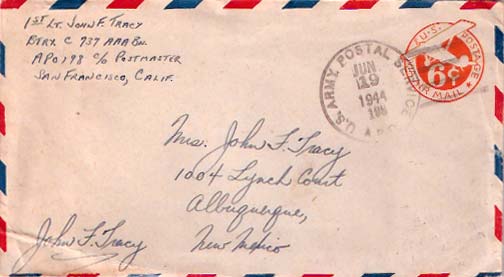 1ST LT. JOHN F. TRACY
BTRY. C 737 AAA BN.
APO 198 C/O POSTMASTER
SAN FRANCISCO, CALIF.
U.S. ARMY POSTAL SERVICE
JUN
19
1944
198
U.S. POSTAGE
6¢
AIR MAIL
Mrs. John F. Tracy
1004 Lynch Court
Albuquerque,
New Mexico
John F. Tracy